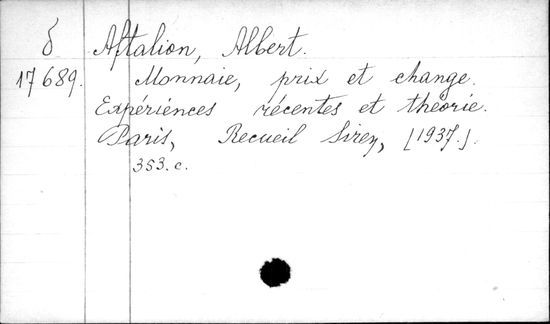 б Aftalion, Albert.
17689. Monnaie, prix et change.
Expériences récentes et théorie.
Paris, Recueil Sirey, [1937.].
353.c.